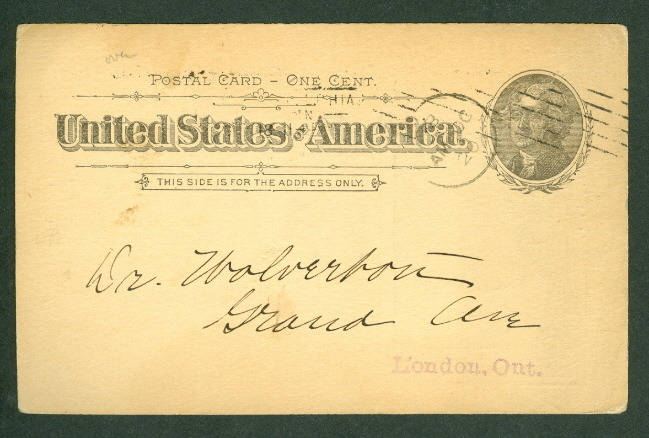 over
POSTAL CARD – ONE CENT.
HIA
United States of America.
THIS SIDE IS FOR THE ADDRESS ONLY.
Dr. Wolverton
Grand Ave
London, Ont.